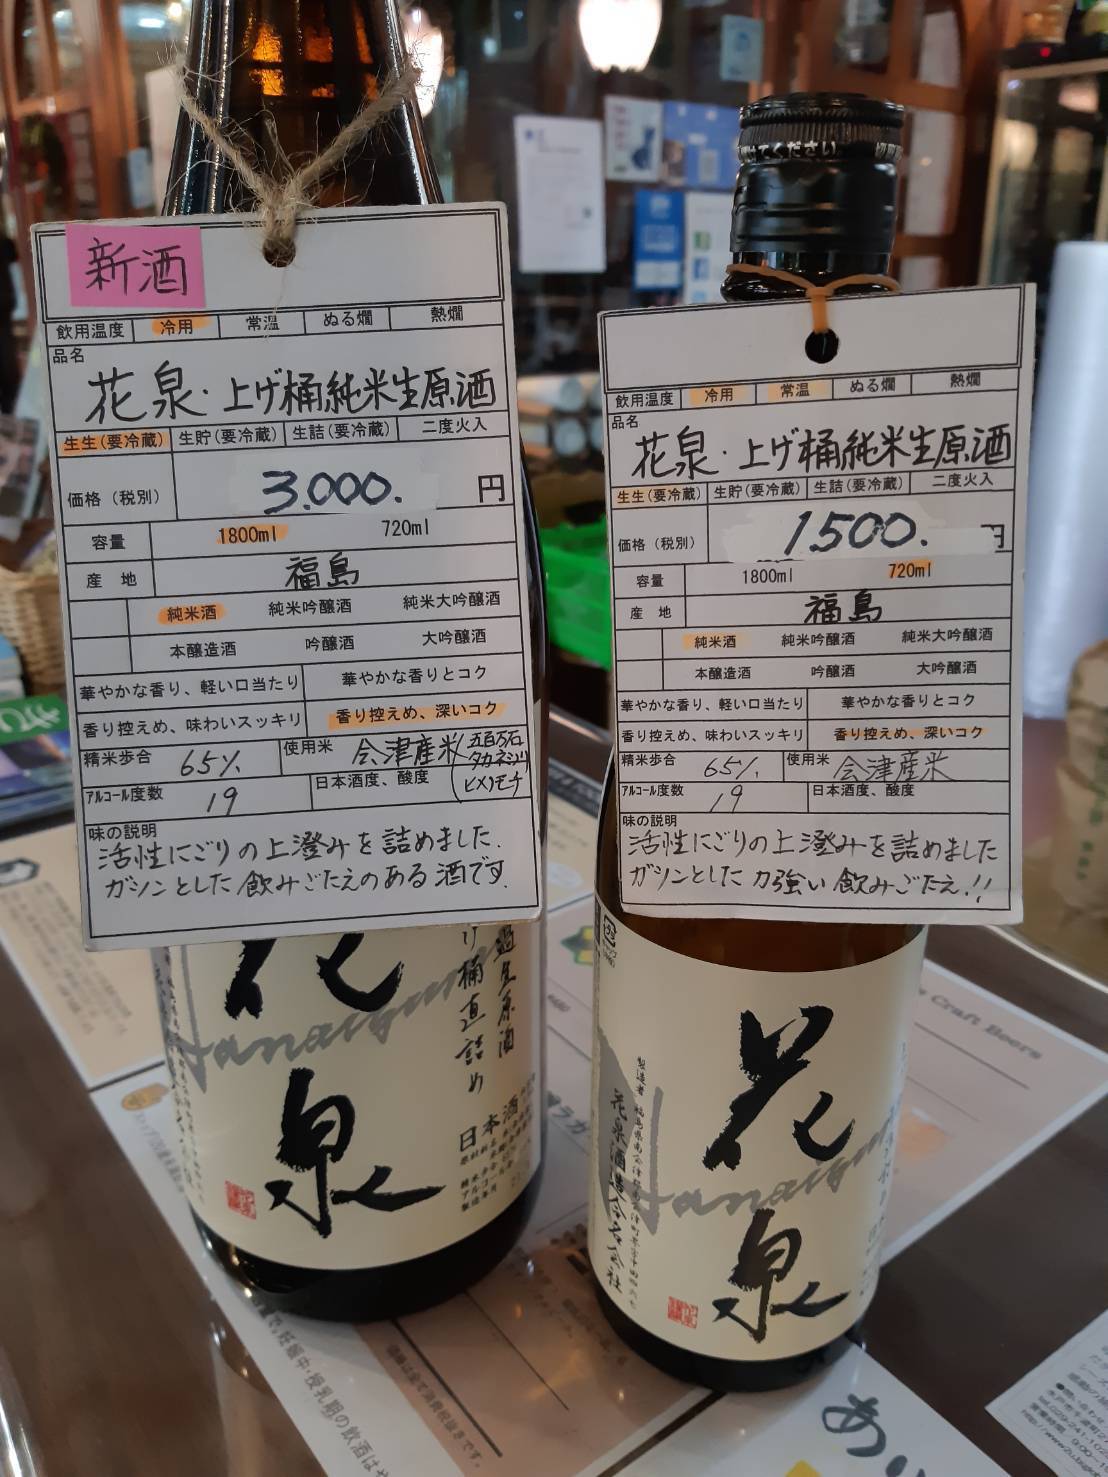 新酒
飲用温度 冷用 常温 ぬる燗 熱燗
品名
花泉・上げ桶純米生原酒
生生(要冷蔵) 生貯(要冷蔵) 生詰(要冷蔵) 二度火入
価格(税別) 3.000. 円
容量 1800ml 720ml
産 地 福島
純米酒 純米吟醸酒 純米大吟醸酒
本醸造酒 吟醸酒 大吟醸酒
華やかな香り、軽い口当たり 華やかな香りとコク
香り控えめ、味わいスッキリ 香り控えめ、深いコク
精米歩合 65% 使用米 会津産米(五百万石 タカネミノリ ヒメノモチ
アルコール度数 19 日本酒度、酸度
味の説明
活性にごりの上澄みを詰めました.
ガツンとした飲みごたえのある酒です.
花泉
Hanaizumi
桶直詰め
日本酒
切ってください
飲用温度 冷用 常温 ぬる燗 熱燗
品名
花泉・上げ桶純米生原酒
生生(要冷蔵) 生貯(要冷蔵) 生詰(要冷蔵) 二度火入
価格(税別) 1500. 円
容量 1800ml 720ml
産 地 福島
純米酒 純米吟醸酒 純米大吟醸酒
本醸造酒 吟醸酒 大吟醸酒
華やかな香り、軽い口当たり 華やかな香りとコク
香り控えめ、味わいスッキリ 香り控えめ、深いコク
精米歩合 65% 使用米 会津産米
アルコール度数 19 日本酒度、酸度
味の説明
活性にごりの上澄みを詰めました
ガツンとした力強い飲みごたえ!!
花泉
Hanaizumi
花泉酒造合名会社
Craft Beers
妊娠中・授乳期の飲酒は